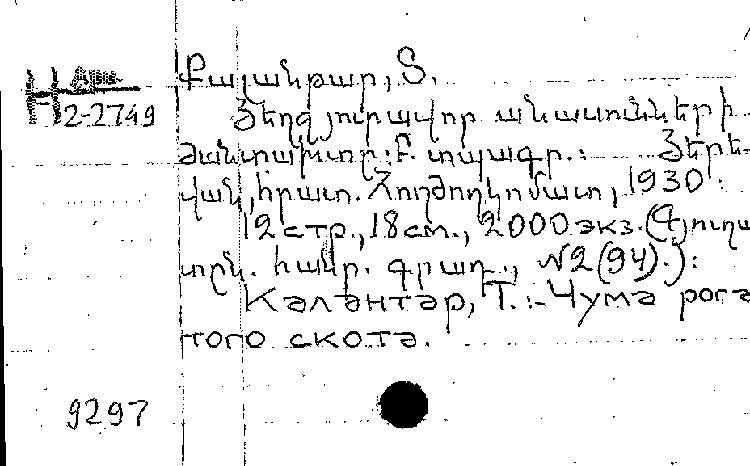 Քալանթար, Տ.
H 2-2749
Եղջյուրավոր անասունների
ժանտախտը: Բ. տպագր.: Երե-
վան, հրատ. Հողժողկոմատ, 1930:
12 стр., 18 см., 2000 экз. (Գյուղա
տնտ. հանր. գրադ., №2(94).):
Калантар, Т.: Чума рога
того скота.
9297